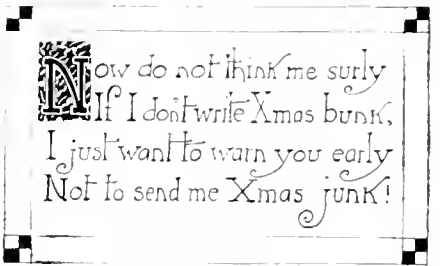 Now do not think me surly
If I don't write Xmas bunk,
I just want to warn you early
Not to send me Xmas junk!